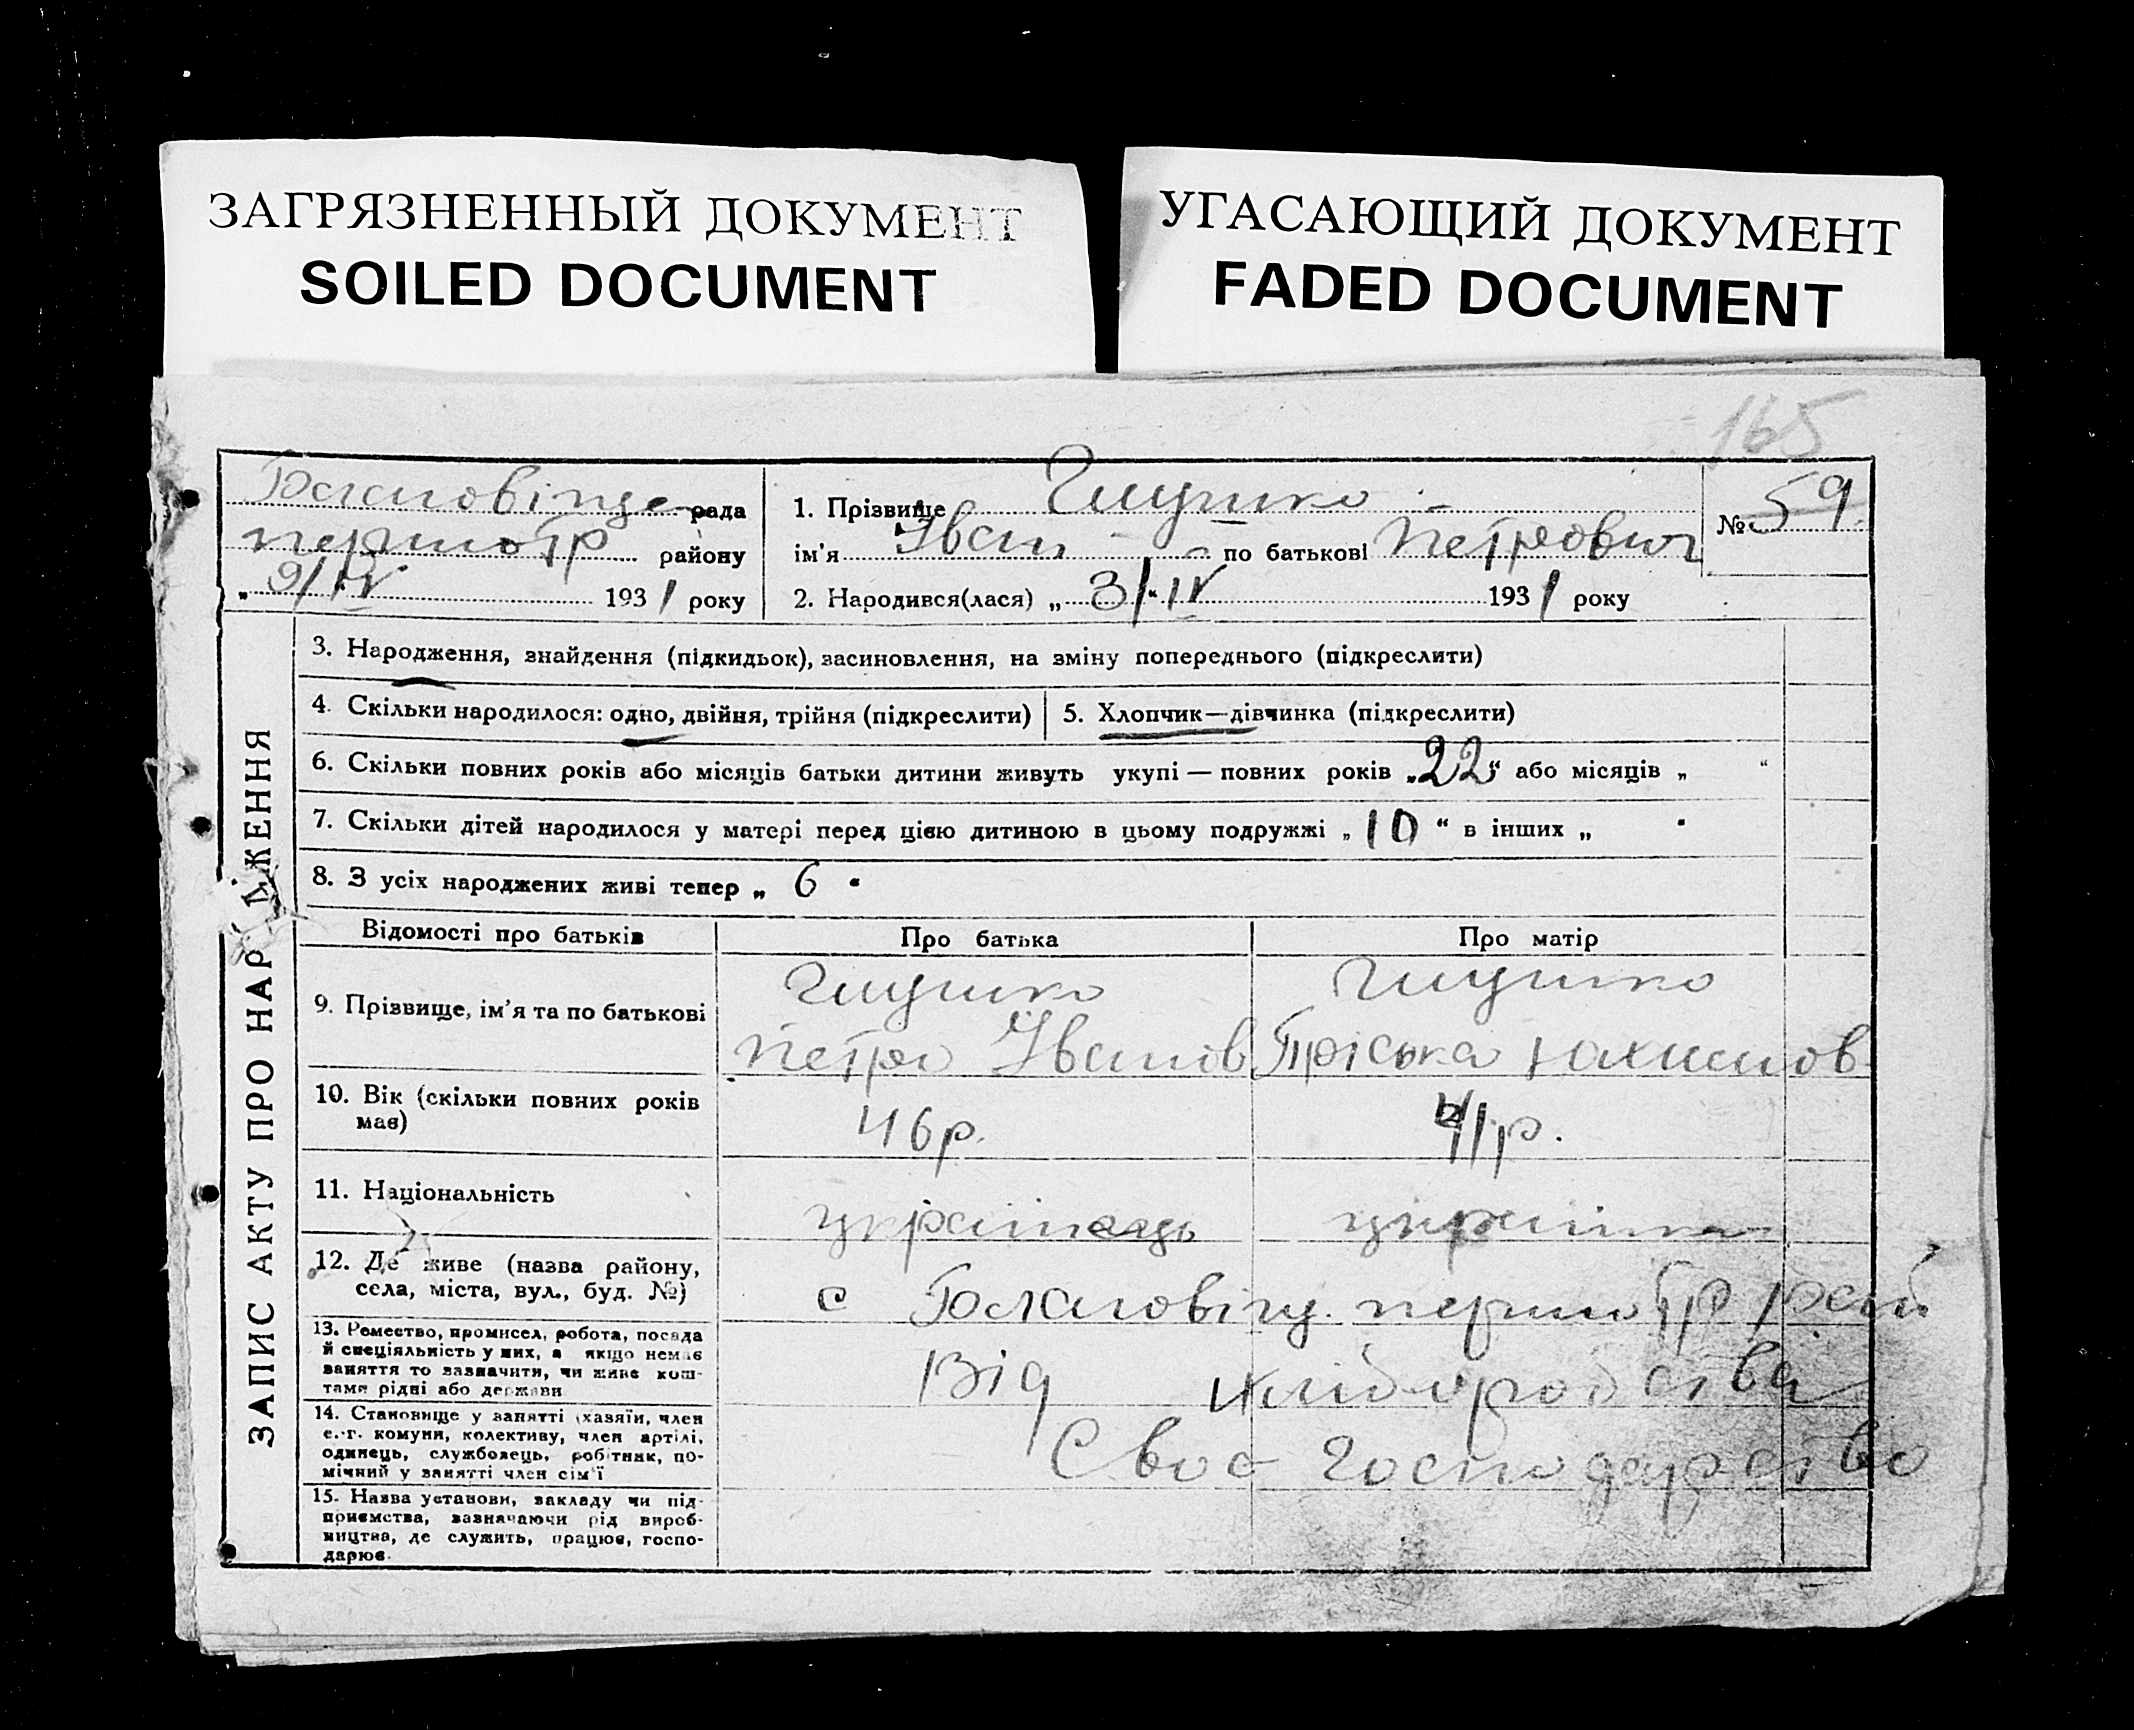 ЗАГРЯЗНЕННЫЙ ДОКУМЕНТ
SOILED DOCUMENT
УГАСАЮЩИЙ ДОКУМЕНТ
FADED DOCUMENT
165
рада
району
„ 9/IV 1931 року
1. Прізвище Глушко
ім'я Іван по батькові Петрович
2. Народився(лася) „ 3/“ IV 1931 року
№ 59
ЗАПИС АКТУ ПРО НАРОДЖЕННЯ
3. Народження, знайдення (підкидьок), засиновлення, на зміну попереднього (підкреслити)
4. Скільки народилося: одно, двійня, трійня (підкреслити)
5. Хлопчик—дівчинка (підкреслити)
6. Скільки повних років або місяців батьки дитини живуть укупі — повних років „22“ або місяців „ “
7. Скільки дітей народилося у матері перед цією дитиною в цьому подружжі „ 10 “ в інших „ “
8. З усіх народжених живі тепер „ 6 “
Відомості про батьків
Про батька
Про матір
9. Прізвище, ім'я та по батькові
Глушко
Петро Іванов
Глушко
Пріська Юхимов
10. Вік (скільки повних років має)
46 р.
41 р.
11. Національність
українець
українка
12. Де живе (назва району,
села, міста, вул., буд. №)
с
13. Ремество, промисел, робота, посада
й спеціяльність у них, а якщо немає
заняття то зазначити, чи живе кош-
тами рідні або держави
Від хліборобства
14. Становище у занятті (хазяїн, член
с.-г. комуни, колективу, член артілі,
одинець, службовець, робітник, по-
мічний у занятті член сім'ї
Своє Господарство
15. Назва установи, закладу чи під-
приємства, зазначаючи рід вироб-
ництва, де служить, працює, госпо-
дарює.